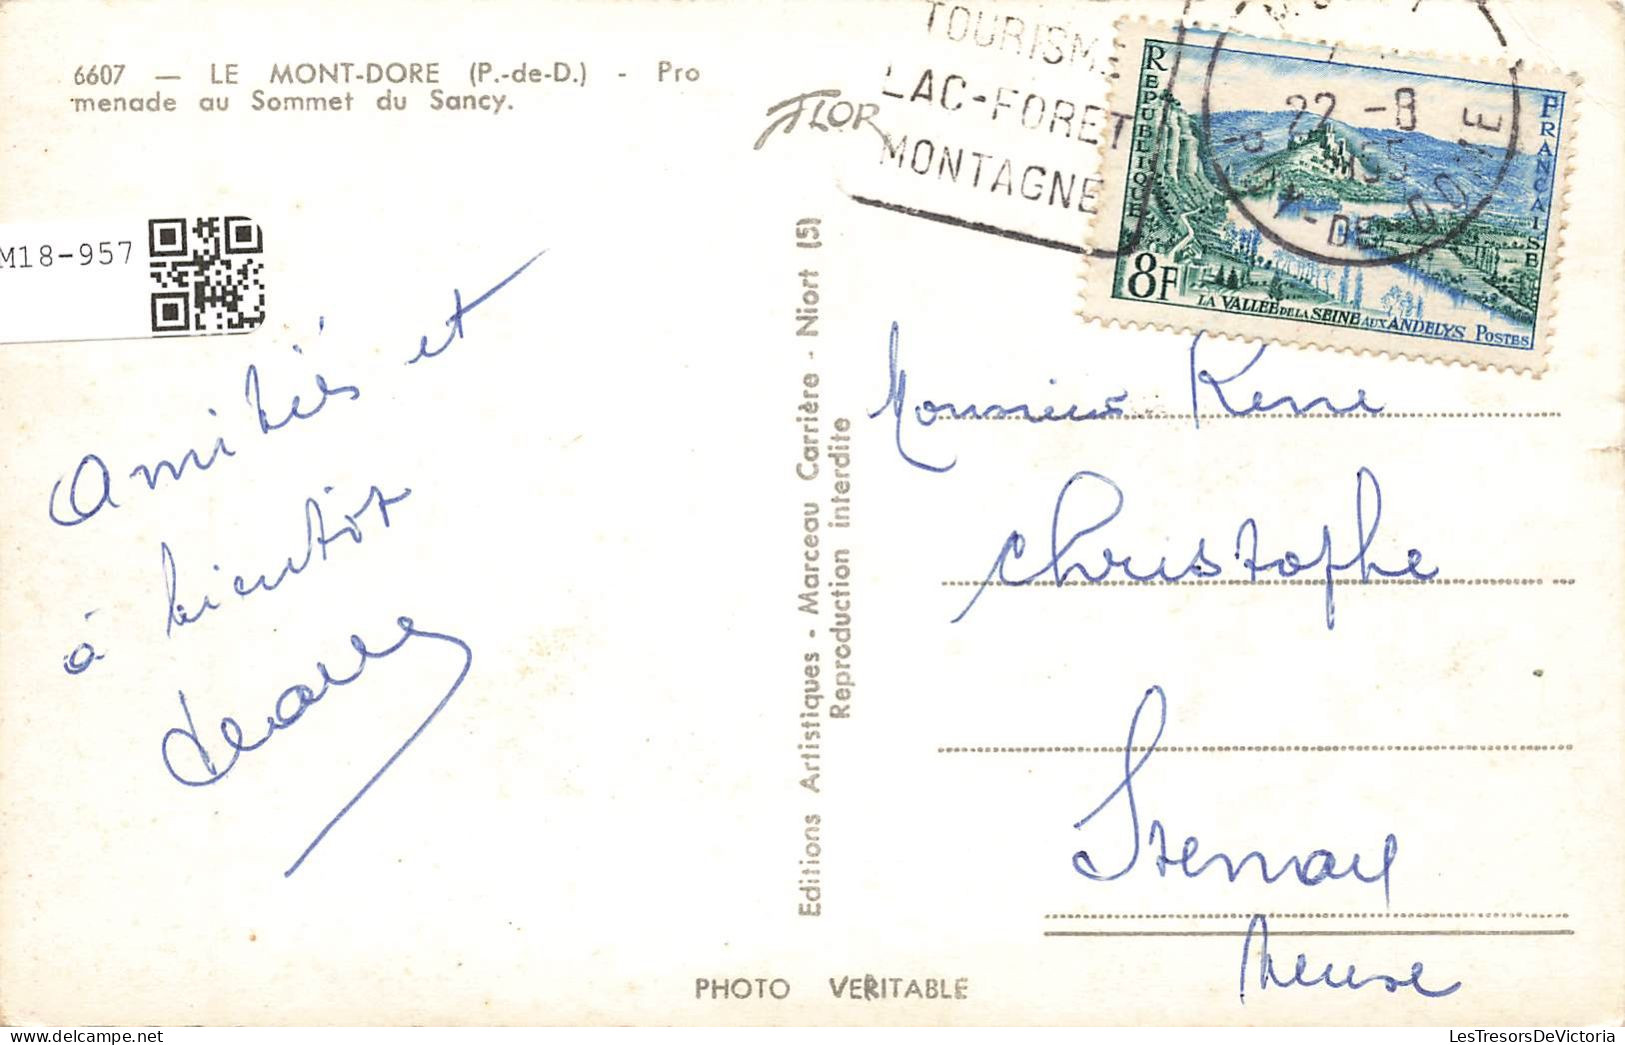 6607 — LE MONT-DORE (P.-de-D.) - Pro
menade au Sommet du Sancy.
FLOR
TOURISME
LAC-FORET
MONTAGNE
22 -8
PUY-DE-DOME
REPUBLIQUE
FRANCAISE
8F
LA VALLÉE DE LA SEINE AUX ANDELYS POSTES
M18-957
Amitiés et
à bientôt
Editions Artistiques - Marceau Carrière - Niort (5)
Reproduction interdite
Monsieur René
Christophe
Stenay
Meuse
PHOTO VERITABLE
LesTresorsDeVictoria